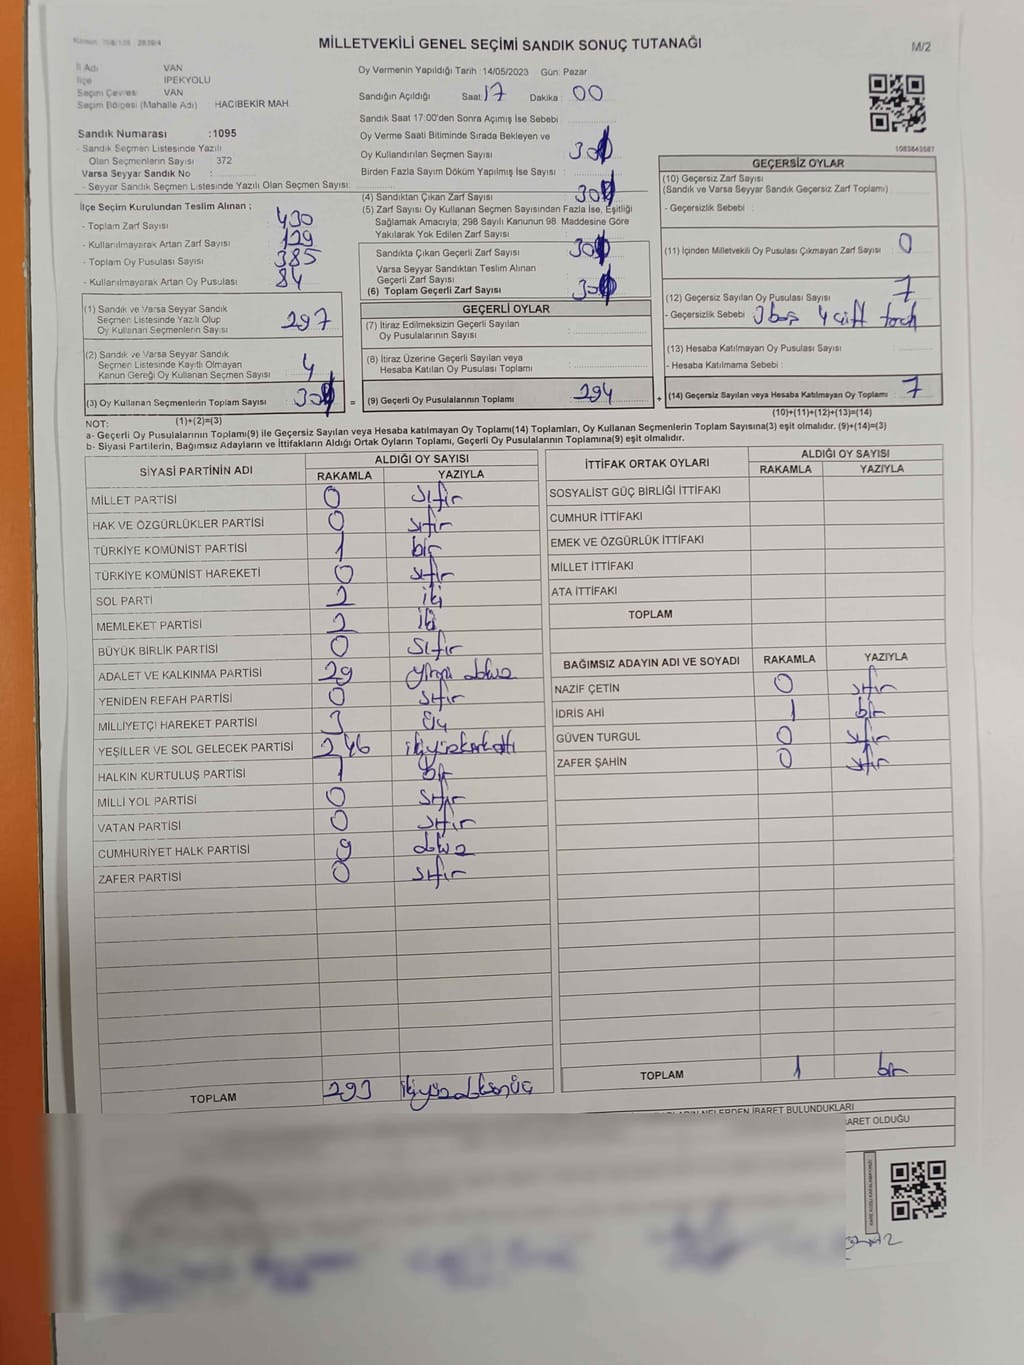 MİLLETVEKİLİ GENEL SEÇİMİ SANDIK SONUÇ TUTANAĞI
M/2
İl Adı VAN
İlçe İPEKYOLU
Seçim Çevresi VAN
Seçim Bölgesi (Mahalle Adı) : HACIBEKİR MAH.
Sandık Numarası : 1095
- Sandık Seçmen Listesinde Yazılı
Olan Seçmenlerin Sayısı : 372
Varsa Seyyar Sandık No :
- Seyyar Sandık Seçmen Listesinde Yazılı Olan Seçmen Sayısı:
İlçe Seçim Kurulundan Teslim Alınan ;
- Toplam Zarf Sayısı : 430
- Kullanılmayarak Artan Zarf Sayısı : 129
- Toplam Oy Pusulası Sayısı : 385
- Kullanılmayarak Artan Oy Pusulası : 84
(1) Sandık ve Varsa Seyyar Sandık
Seçmen Listesinde Yazılı Olup
Oy Kullanan Seçmenlerin Sayısı : 297
(2) Sandık ve Varsa Seyyar Sandık
Seçmen Listesinde Kayıtlı Olmayan
Kanun Gereği Oy Kullanan Seçmen Sayısı : 4
(3) Oy Kullanan Seçmenlerin Toplam Sayısı : 301
(1)+(2)=(3)
Oy Vermenin Yapıldığı Tarih : 14/05/2023 Gün: Pazar
Sandığın Açıldığı Saat: 17 Dakika : 00
Sandık Saat 17:00'den Sonra Açımış İse Sebebi :
Oy Verme Saati Bitiminde Sırada Bekleyen ve
Oy Kullandırılan Seçmen Sayısı : 301
Birden Fazla Sayım Döküm Yapılmış İse Sayısı :
(4) Sandıktan Çıkan Zarf Sayısı : 301
(5) Zarf Sayısı Oy Kullanan Seçmen Sayısından Fazla İse, Eşitliği
Sağlamak Amacıyla; 298 Sayılı Kanunun 98. Maddesine Göre
Yakılarak Yok Edilen Zarf Sayısı :
Sandıkta Çıkan Geçerli Zarf Sayısı : 301
Varsa Seyyar Sandıktan Teslim Alınan
Geçerli Zarf Sayısı :
(6) Toplam Geçerli Zarf Sayısı : 301
GEÇERLİ OYLAR
(7) İtiraz Edilmeksizin Geçerli Sayılan
Oy Pusulalarının Sayısı :
(8) İtiraz Üzerine Geçerli Sayılan veya
Hesaba Katılan Oy Pusulası Toplamı :
= (9) Geçerli Oy Pusulalarının Toplamı : 294
1083643587
GEÇERSİZ OYLAR
(10) Geçersiz Zarf Sayısı
(Sandık ve Varsa Seyyar Sandık Geçersiz Zarf Toplamı) :
- Geçersizlik Sebebi :
(11) İçinden Milletvekili Oy Pusulası Çıkmayan Zarf Sayısı : 0
(12) Geçersiz Sayılan Oy Pusulası Sayısı : 7
- Geçersizlik Sebebi : 3 boş 4 çift
(13) Hesaba Katılmayan Oy Pusulası Sayısı :
- Hesaba Katılmama Sebebi :
+ (14) Geçersiz Sayılan veya Hesaba Katılmayan Oy Toplamı : 7
(10)+(11)+(12)+(13)=(14)
NOT:
a- Geçerli Oy Pusulalarının Toplamı(9) ile Geçersiz Sayılan veya Hesaba Katılmayan Oy Toplamı(14) Toplamları, Oy Kullanan Seçmenlerin Toplam Sayısına(3) eşit olmalıdır. (9)+(14)=(3)
b- Siyasi Partilerin, Bağımsız Adayların ve İttifakların Aldığı Ortak Oyların Toplamı, Geçerli Oy Pusulalarının Toplamına(9) eşit olmalıdır.
SİYASİ PARTİNİN ADI ALDIĞI OY SAYISI
RAKAMLA YAZIYLA
MİLLET PARTİSİ 0 sıfır
HAK VE ÖZGÜRLÜKLER PARTİSİ 0 sıfır
TÜRKİYE KOMÜNİST PARTİSİ 1 bir
TÜRKİYE KOMÜNİST HAREKETİ 0 sıfır
SOL PARTİ 2 iki
MEMLEKET PARTİSİ 2 iki
BÜYÜK BİRLİK PARTİSİ 0 sıfır
ADALET VE KALKINMA PARTİSİ 29 yirmi dokuz
YENİDEN REFAH PARTİSİ 0 sıfır
MİLLİYETÇİ HAREKET PARTİSİ 3 üç
YEŞİLLER VE SOL GELECEK PARTİSİ 246 ikiyüzkırkaltı
HALKIN KURTULUŞ PARTİSİ 1 bir
MİLLİ YOL PARTİSİ 0 sıfır
VATAN PARTİSİ 0 sıfır
CUMHURİYET HALK PARTİSİ 9 dokuz
ZAFER PARTİSİ 0 sıfır
TOPLAM 293 ikiyüzdoksanüç
İTTİFAK ORTAK OYLARI ALDIĞI OY SAYISI
RAKAMLA YAZIYLA
SOSYALİST GÜÇ BİRLİĞİ İTTİFAKI
CUMHUR İTTİFAKI
EMEK VE ÖZGÜRLÜK İTTİFAKI
MİLLET İTTİFAKI
ATA İTTİFAKI
TOPLAM
BAĞIMSIZ ADAYIN ADI VE SOYADI RAKAMLA YAZIYLA
NAZİF ÇETİN 0 sıfır
İDRİS AHİ 1 bir
GÜVEN TURGUL 0 sıfır
ZAFER ŞAHİN 0 sıfır
TOPLAM 1 bir
NELERDEN İBARET BULUNDUKLARI
BARET OLDUĞU